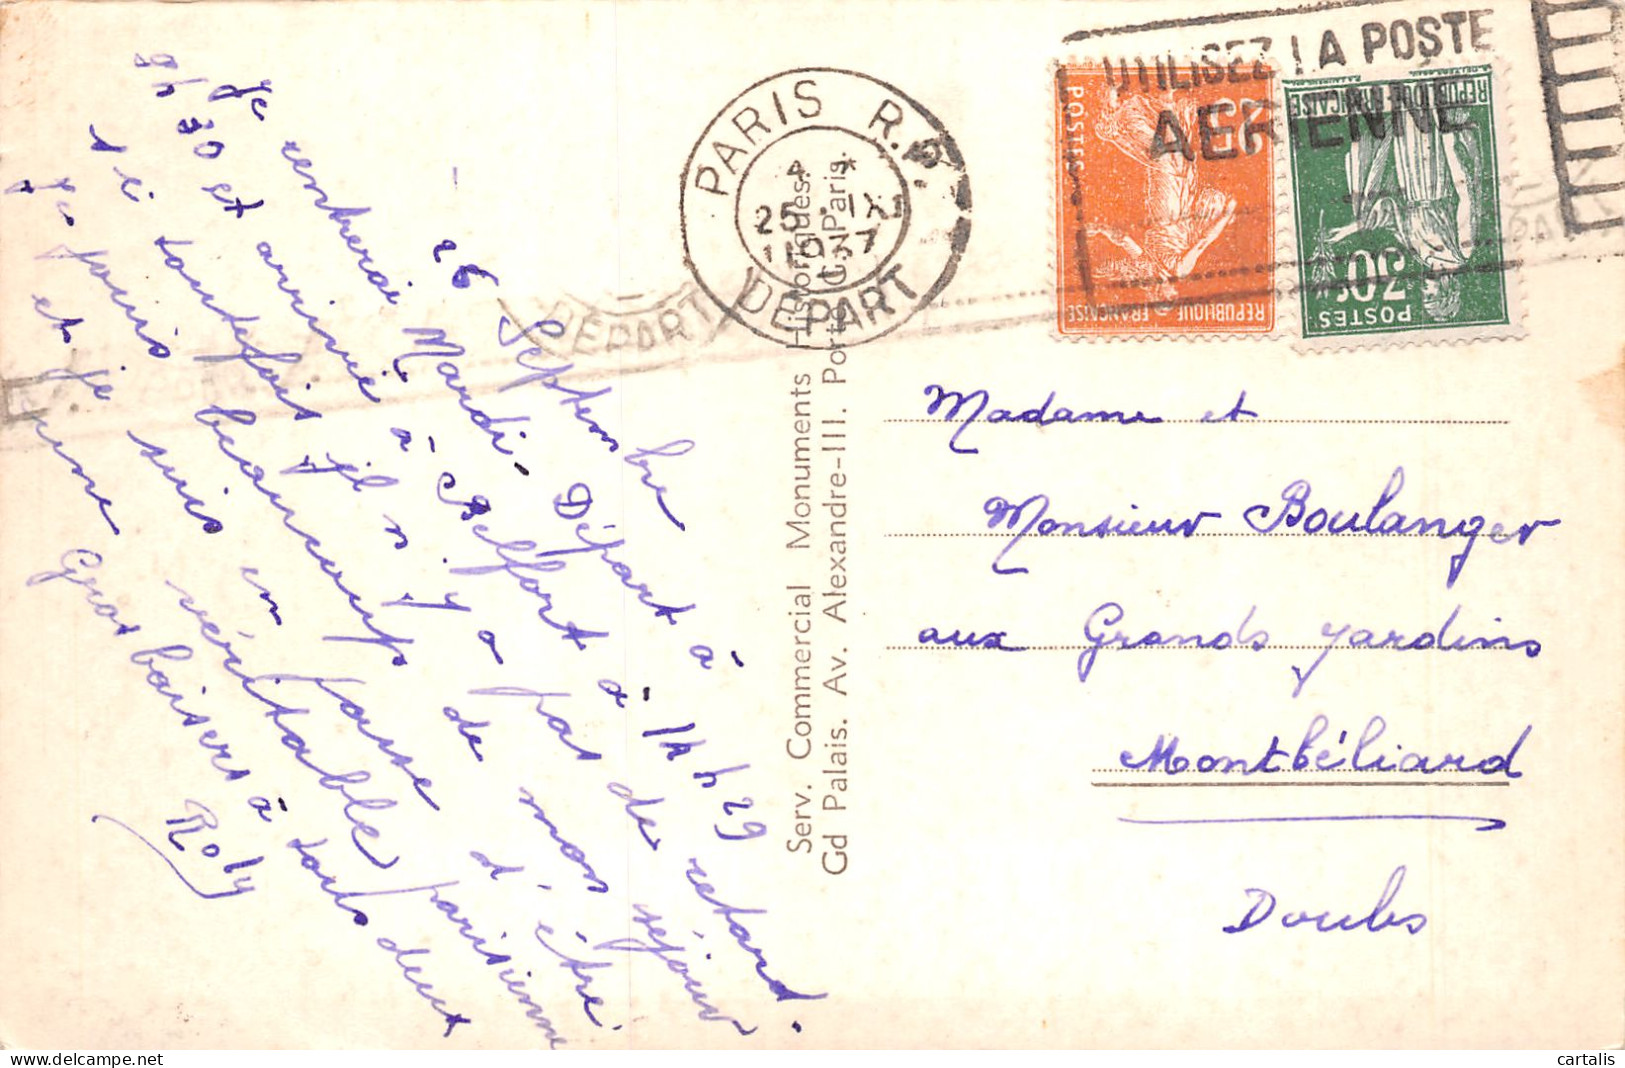 26 Septembre
Je rentrerai Mardi. Départ à
9h30 et arrivée à Belfort à 14h29
si toutefois il n'y a pas de retard.
Je jouis beaucoup de mon séjour
et je suis en passe d'être
une véritable parisienne
Gros baisers à tous deux
Roly
Serv. Commercial Monuments Historiques.
Gd Palais. Av. Alexandre-III. Porte C, Paris.
PARIS R.P.
4 *
25 · IX
1937
DÉPART
DÉPART
UTILISEZ LA POSTE
AERIENNE
POSTES
25c
REPUBLIQUE FRANÇAISE
REPUBLIQUE FRANÇAISE
30c
POSTES
Madame et
Monsieur Boulanger
aux Grands Jardins
Montbéliard
Doubs
cartalis
www.delcampe.net